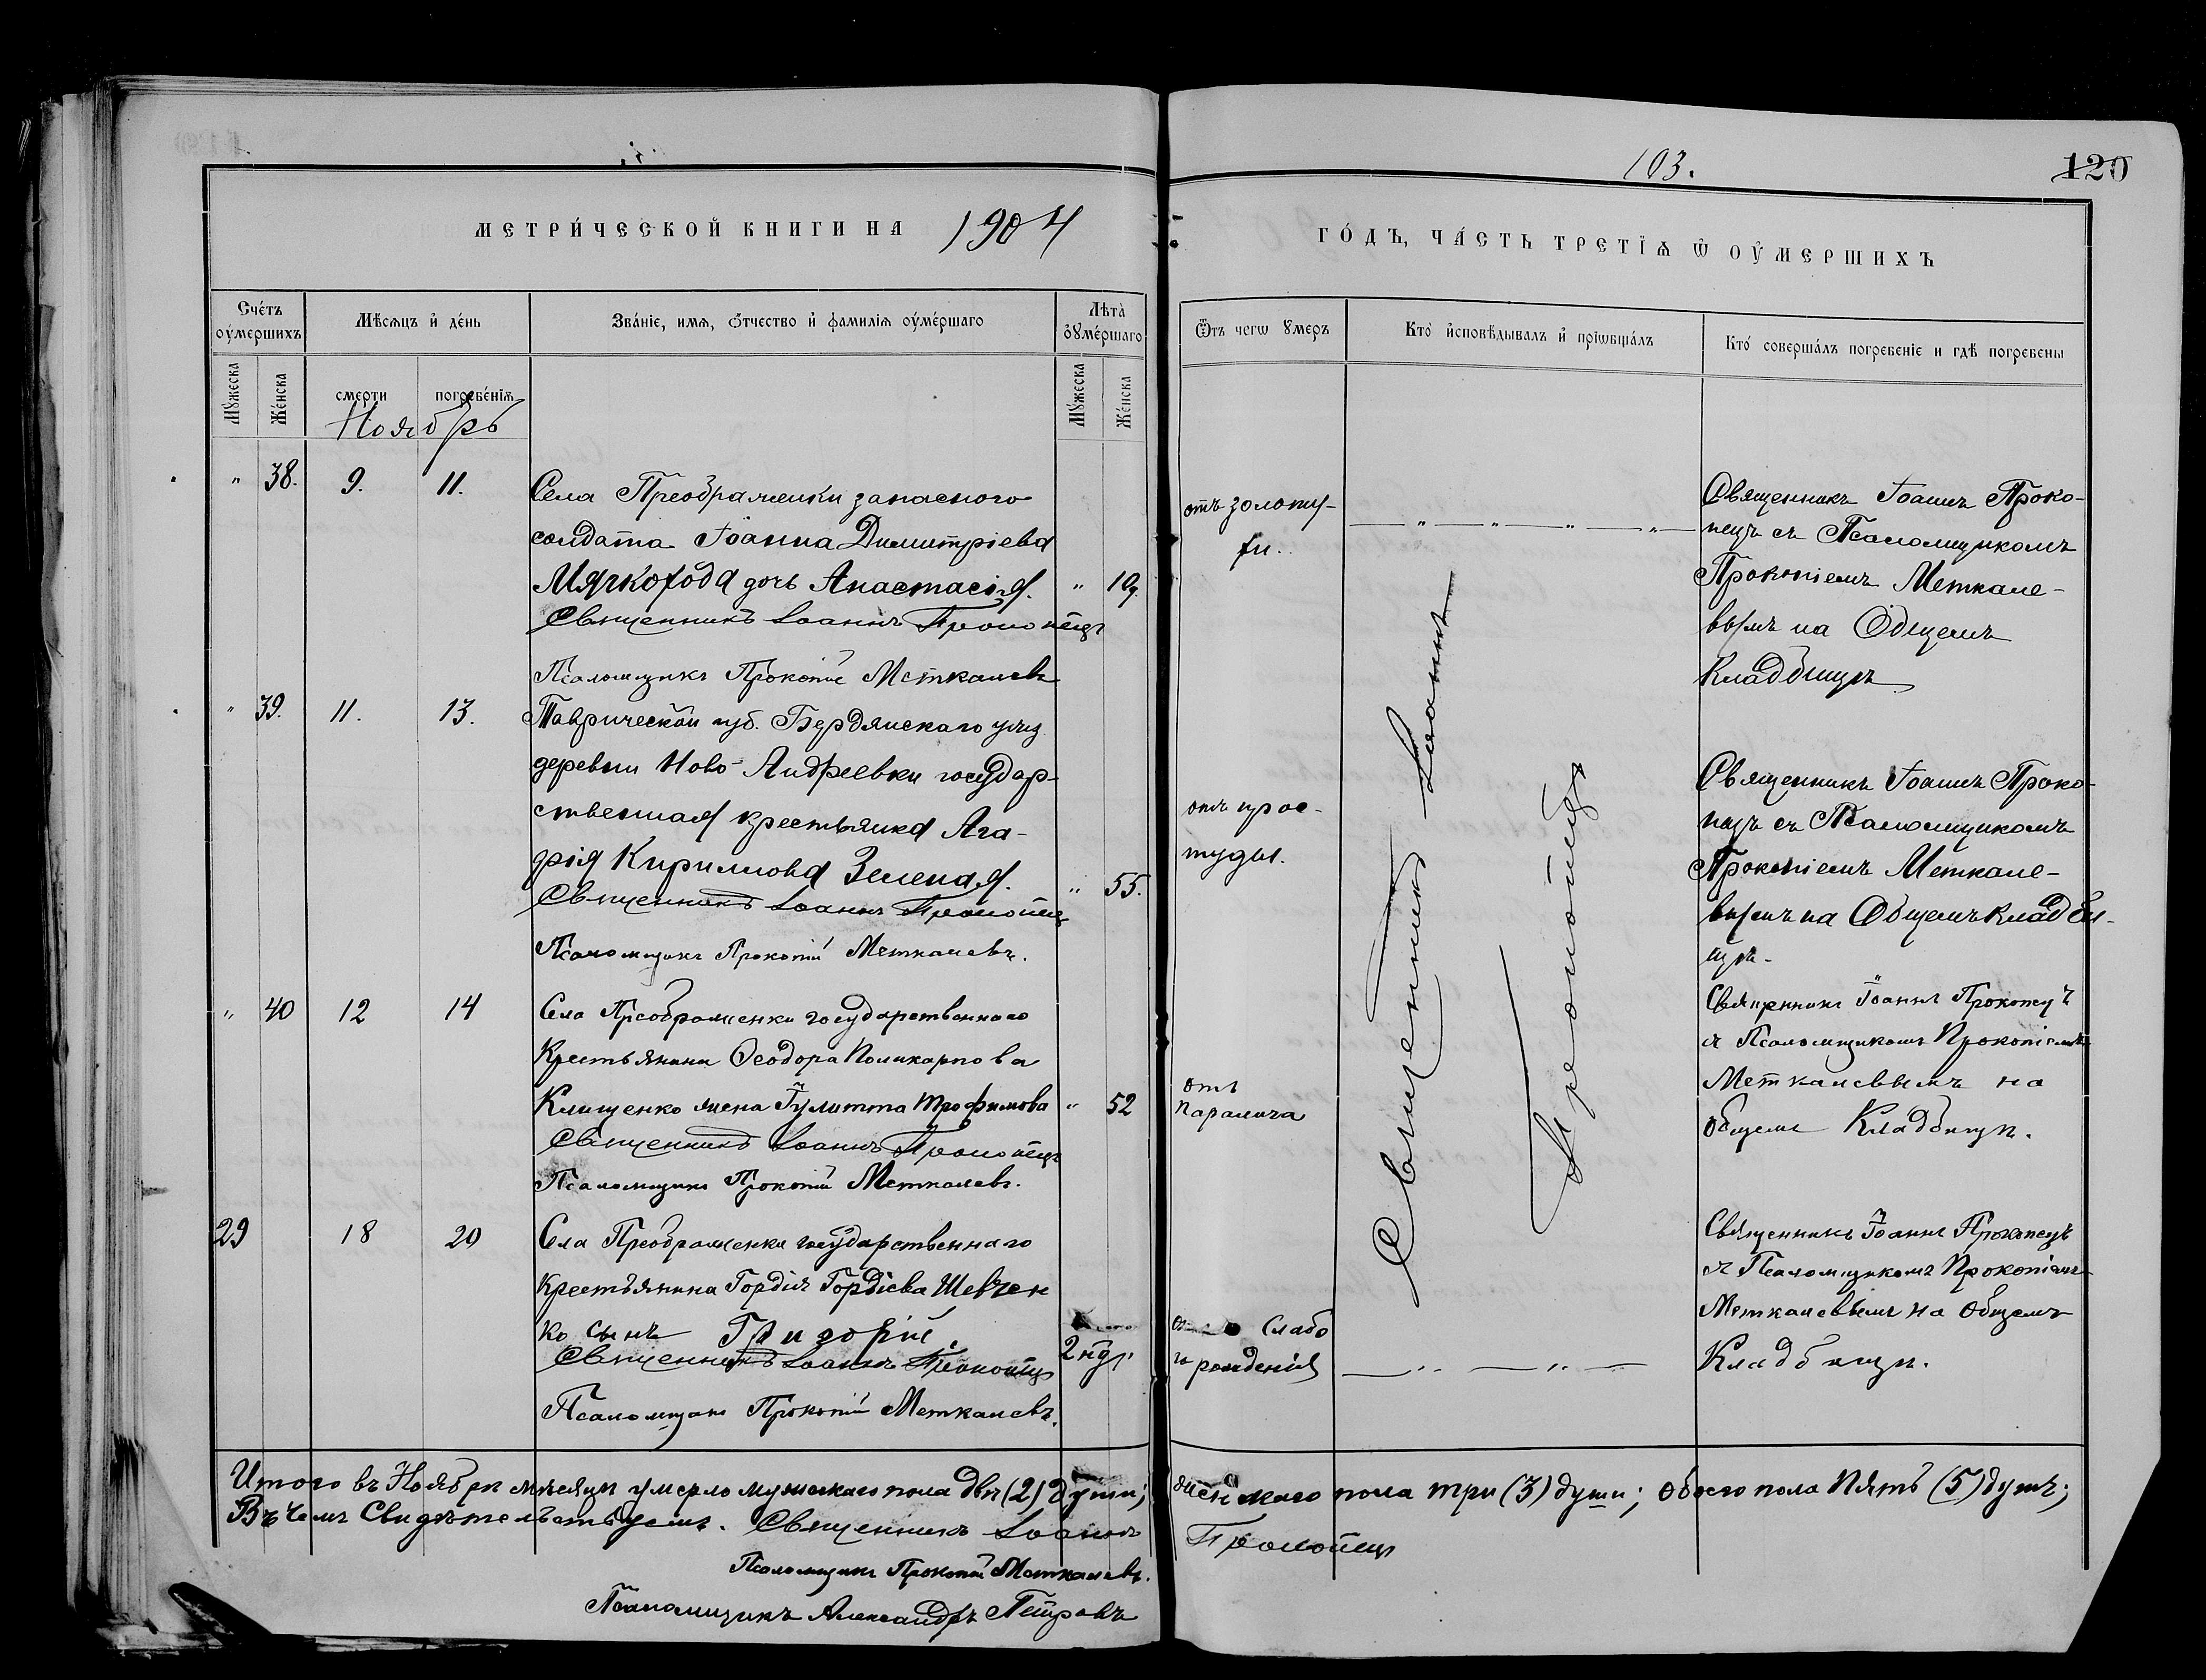 103.
120
МЕТРИ́ЧЕСКОЙ КНИГИ НА 1904
ГО́ДЪ, ЧА́СТЬ ТРЕТІѦ Ѡ҆ ОУ҆МЕРШИХЪ
Сче́тъ оу҆́мершихъ
Мѣ́сѧцъ и҆ де́нь
Зва́ніе, имѧ, ѻ҆́тчество и҆ фамилїѧ оу҆ме́ршаго
Лѣта̀ оу҆ме́ршаго
Ѿ чегѡ ꙋмеръ
Кто̀ и҆сповѣ́дывалъ и҆ прїѡбща́лъ
Кто́ соверша́лъ погребе́ніе и гдѣ̀ погребены
Мꙋ́жеска
Же́нска
смерти
погребе́нїѧ
Мꙋ́жеска
Же́нска
Ноябрь
" 38. 9. 11.
Села Преображенки запасного
солдата Іоанна Димитріева
Мягкохода дочь Анастасія. " 10 г.
Священникъ Іоаннъ Прокопецъ
Псаломщикъ Прокопій Меткалевъ
отъ золоту-
хи.
— " — " — " — " —
Священникъ Іоаннъ Проко-
пецъ съ Псаломщикомъ
Прокопіемъ Меткале-
вымъ на Общемъ
Кладбищѣ
" 39. 11. 13.
Таврической губ. Бердянскаго уѣзд.
деревни Ново-Андреевки государ-
ственная крестьянка Ага-
фія Кириллова Зеленая. " 55.
Священникъ Іоаннъ Прокопецъ
Псаломщикъ Прокопій Меткалевъ.
отъ прос-
туды.
Священникъ Іоаннъ
Прокопецъ
Священникъ Іоаннъ Проко-
пецъ съ Псаломщикомъ
Прокопіемъ Меткале-
вымъ на Общемъ кладби-
щѣ.
" 40 12 14
Села Преображенки государственнаго
Крестьянина Ѳеодора Поликарпова
Клищенко жена Іулитта Трофимова " 52
Священникъ Іоаннъ Прокопецъ
Псаломщикъ Прокопій Меткалевъ.
отъ
паралича
Священникъ Іоаннъ Прокопецъ
съ Псаломщикомъ Прокопіемъ
Меткалевымъ на
общемъ Кладбищѣ.
29 18 20
Села Преображенки государственнаго
крестьянина Гордія Гордіева Шевчен
ко сынъ Григорій.
Священникъ Іоаннъ Прокопецъ
Псаломщикъ Прокопій Меткалевъ.
2 нд.
слабо
рожденія
— " — " —
Священникъ Іоаннъ Прокопецъ
съ Псаломщикомъ Прокопіемъ
Меткалевымъ на общемъ
Кладбищѣ.
Итого въ Ноябрѣ мѣсяцѣ умерло мужескаго пола двѣ (2) души; женскаго пола три (3) души; обоего пола пять (5) душъ;
Въ чемъ свидѣтельствуемъ. Священникъ Іоаннъ Прокопецъ
Псаломщикъ Прокопій Меткалевъ.
Псаломщикъ Александръ Петровъ